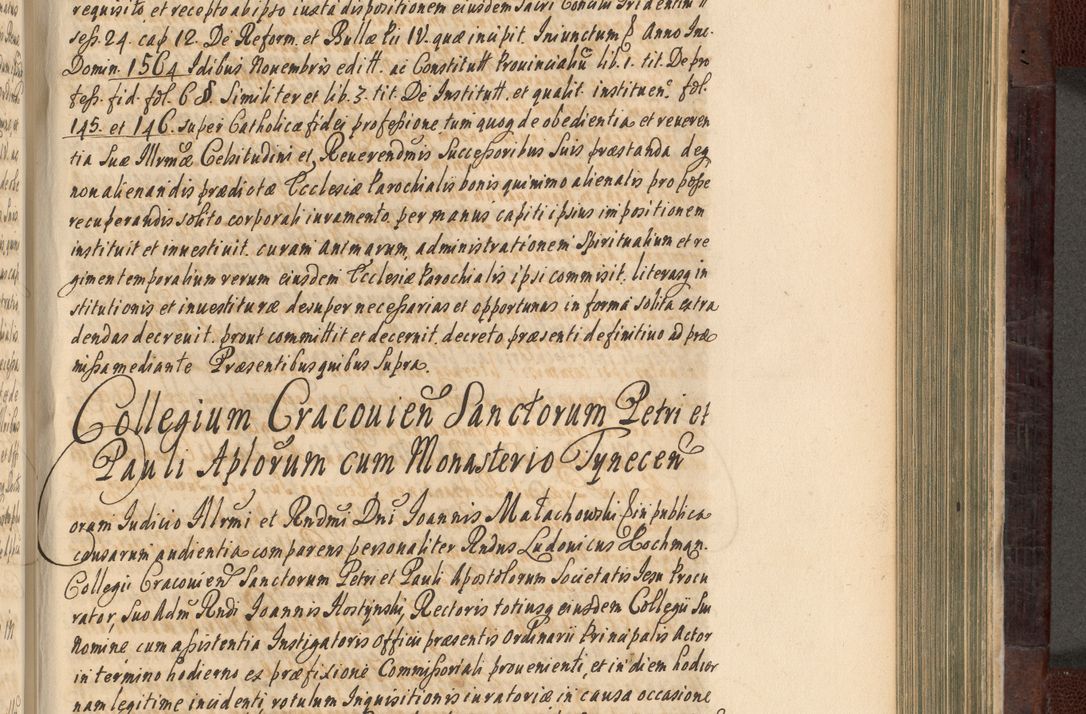 requisito et recepto ab ipso iuxta dispositionem eiusdem Sacri Concilii Tridentini
seß. 24. cap 12. De Reform. et Bullæ Pii IV. quæ incipit. Iniunctum § Anno Inc.
Domin. 1564 Idibus Novembris editt. ac Constitutt Provincialiũ lib. 1. tit. De pro
feß. fid. fol. 6 §. Similiter et lib. 3. tit. De Institutt. et qualit. instituen. fol.
145. et 146. super Catholicæ fidei profeßione tum quoq de obedientia et reveren
tia Suæ Illrmæ Celsitudini et Reverendmis Succeßoribus Suis præstanda deq
non alienandis prædictæ Ecclesiæ Parochialis bonis quinimo alienatis pro poße
recuperandis solito corporali iuramento. per manus capiti ipsius impositionem
instituit et investivit. curam animarum administrationem Spiritualium et re
gimen temporalium rerum eiusdem Ecclesiæ Parochialis ipsi commisit. literasq in
stitutionis et investituræ desuper neceßarias et opportunas in forma solita extra
dendas decrevit. prout committit et decernit. decreto præsenti definitivo ad præ
mißa mediante Præsentibus quibus Supra.
Collegium Cracovień Sanctorum Petri et
Pauli Aplorum cum Monasterio Tyneceń
oram Iudicio Illrmi et Rndmi Dni Joannis Małachowski Epi in publica
causarum audientia comparens personaliter Rndus Ludovicus Hochman.
Collegii Cracovień Sanctorum Petri et Pauli Apostolorum Societatis Jesu Procu
rator, Suo Adm Rndi Joannis Hostynski, Rectoris totiusq eiusdem Collegii Sui
Nomine cum aßistentia Instigatoris Officii præsentis Ordinarii Principalis Actor
in termino hodierno ex præfixione Commißoriali provenienti, et in diem hodier
nam legitime incidenti, rotulum Inquisitionis iuratoriæ in causa occasione